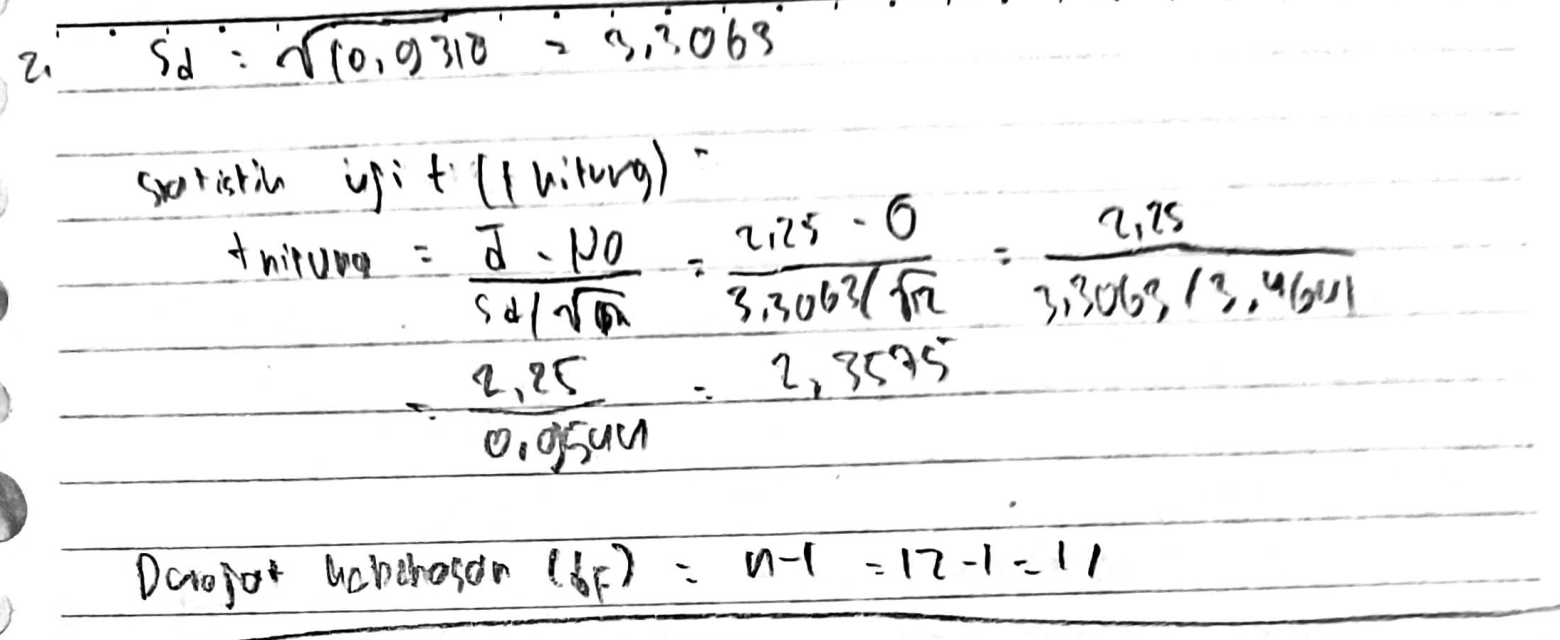 2. Sd : √10,9318 = 3,3063
Statistik uji t (t hitung) =
t hitung = d̄ - μ0 / sd/√n = 2,25 - 0 / 3,3063/√12 = 2,25 / 3,3063/3,4641
= 2,25 / 0,9544 = 2,3575
Derajat kebebasan (df) = n-1 = 12-1 = 11